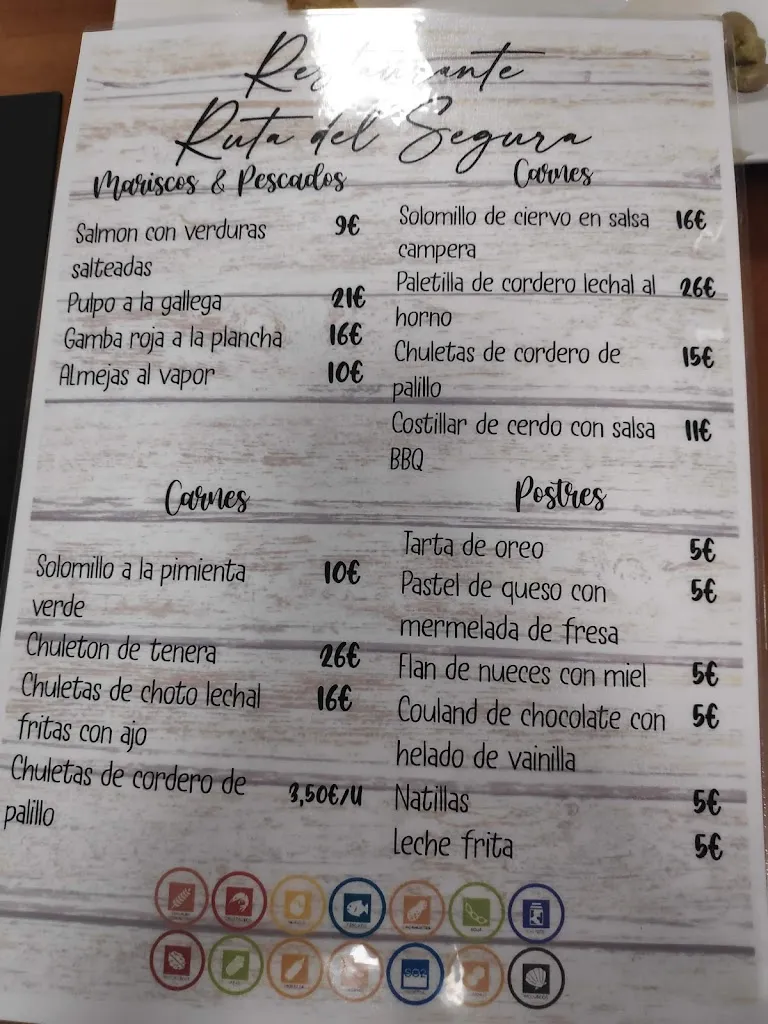 Restaurante
Ruta del Segura
Mariscos & Pescados
Salmon con verduras 9€
salteadas
Pulpo a la gallega 21€
Gamba roja a la plancha 16€
Almejas al vapor 10€
Carnes
Solomillo de ciervo en salsa 16€
campera
Paletilla de cordero lechal al 26€
horno
Chuletas de cordero de 15€
palillo
Costillar de cerdo con salsa 11€
BBQ
Carnes
Solomillo a la pimienta 10€
verde
Chuleton de tenera 26€
Chuletas de choto lechal 16€
fritas con ajo
Chuletas de cordero de 3,50€/U
palillo
Postres
Tarta de oreo 5€
Pastel de queso con 5€
mermelada de fresa
Flan de nueces con miel 5€
Couland de chocolate con 5€
helado de vainilla
Natillas 5€
Leche frita 5€
SO2